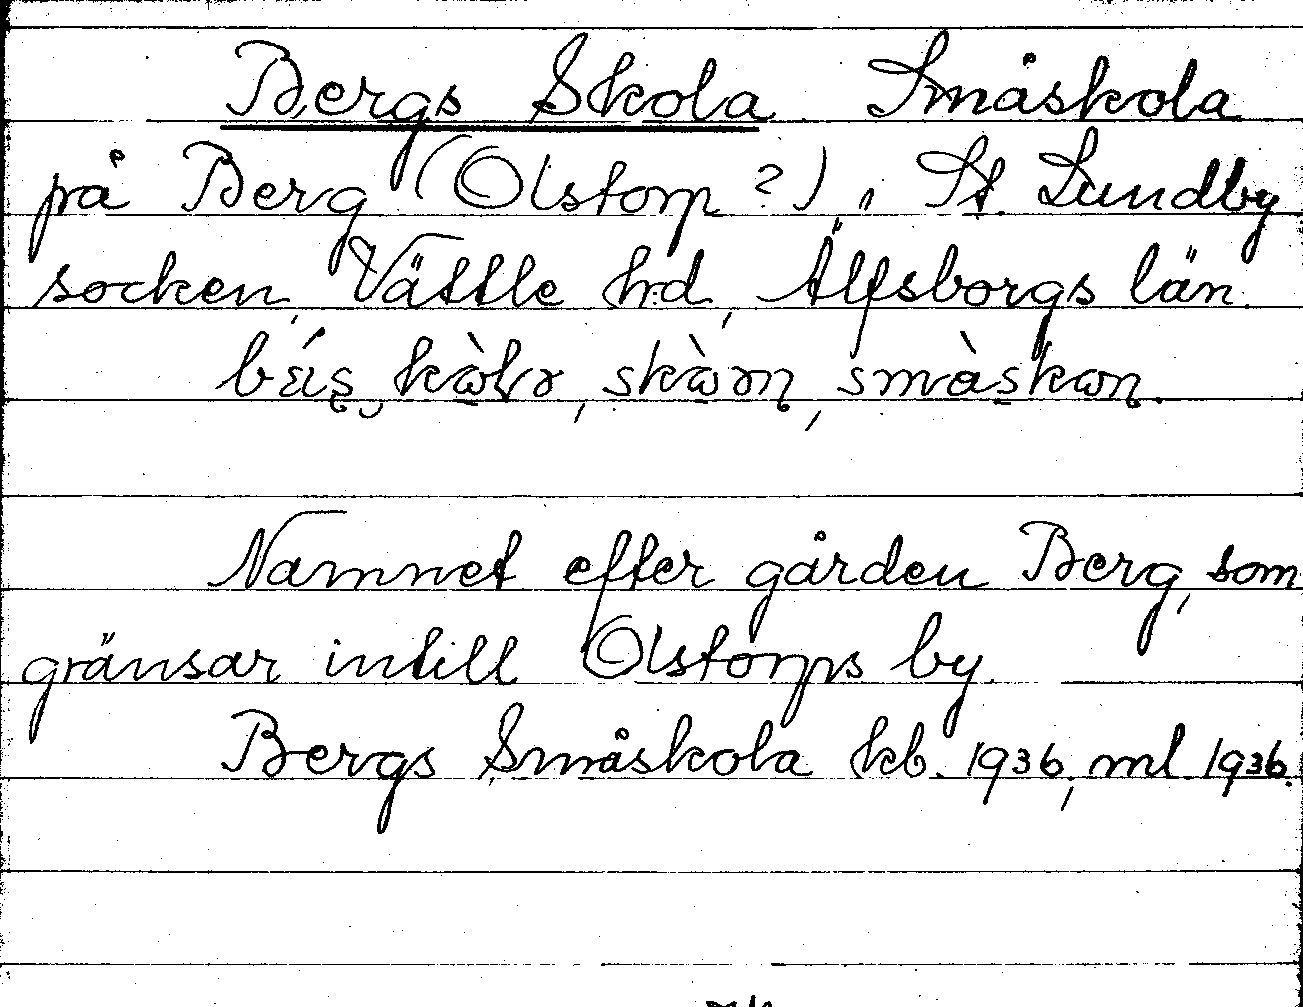 Bergs Skola Småskola
på Berg (Olstorp ?), St. Lundby
socken, Vättle hd, Älfsborgs län.
Namnet efter gården Berg, som
gränsar intill Olstorps by.
Bergs Småskola kb. 1936, ml 1936.